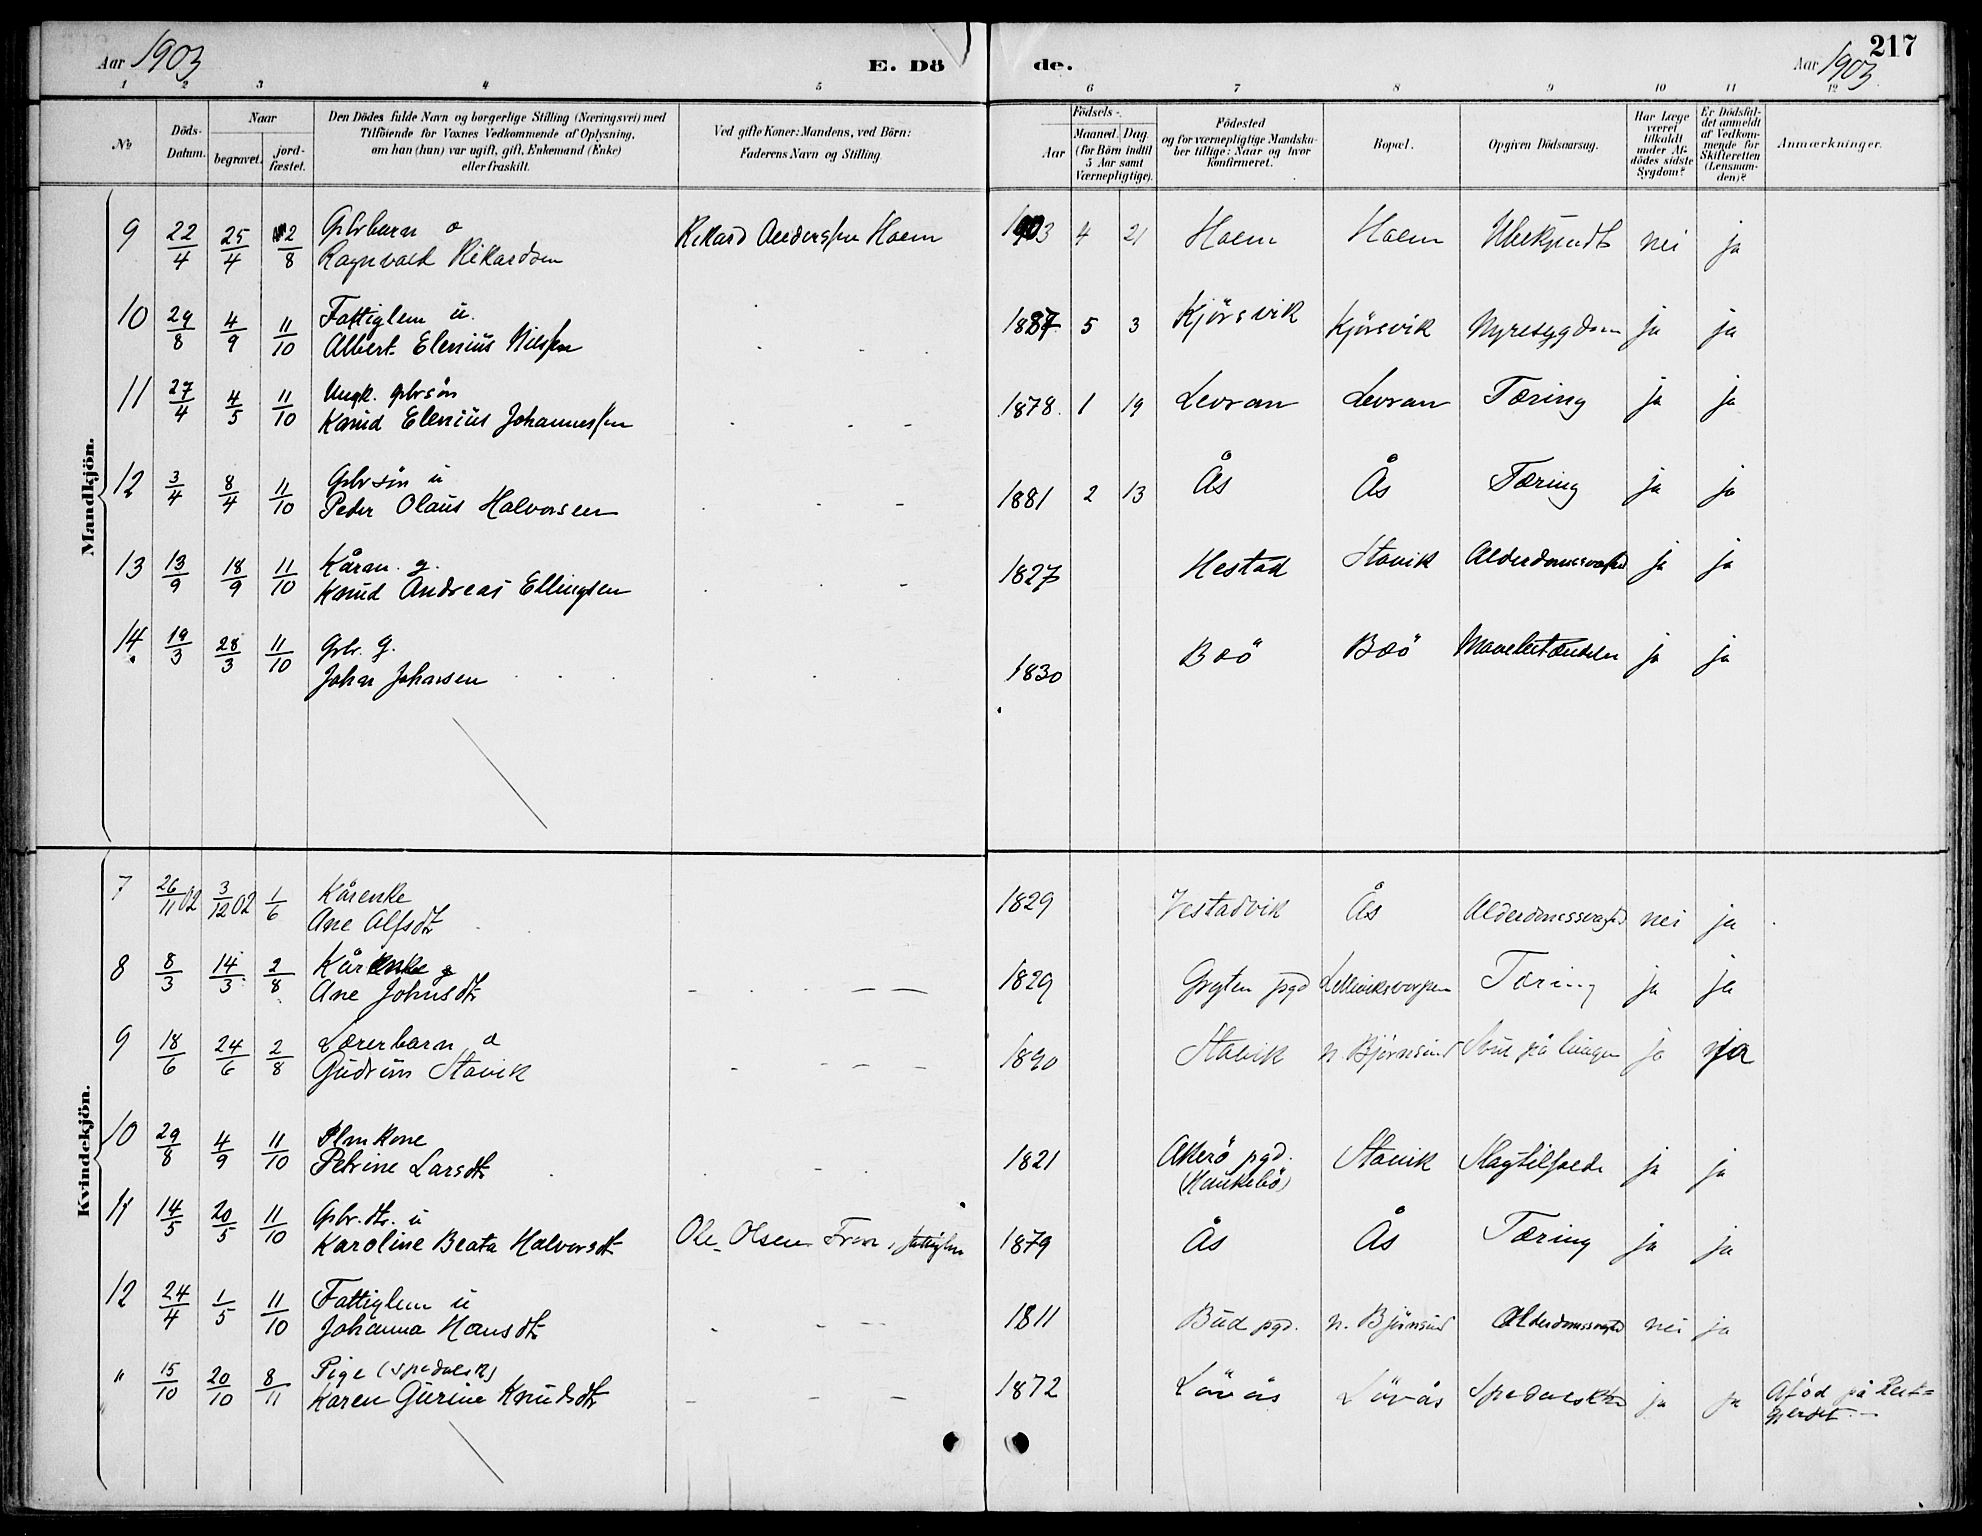 Aar 1903 E. Dö de. Aar 1903 217
1 2 3 4 5 6 7 8 9 10 11 12
№
Döds-Datum.
Naar
begravet.
jord-fæstet.
Den Dödes fulde Navn og borgerlige Stilling (Næringsvei) med
Tilföiende for Voxnes Vedkommende af Oplysning,
om han (hun) var ugift, gift, Enkemand (Enke)
eller fraskilt.
Ved gifte Koner: Mandens, ved Börn:
Faderens Navn og Stilling.
Födsels-
Aar
Maaned. Dag
(for Börn indtil
5 Aar samt
Værnepligtige).
Födested
og for værnepligtige Mandska-
ber tillige: Naar og hvor
konfirmeret.
Bopæl.
Opgiven Dödsaarsag.
Har Læge
været
tilkaldt
under Af-
dödes sidste
Sygdom?
Er Dödsfal-
det anmeldt
af Vedkom-
mende for
Skifteretten
(Lensman-
den)?
Anmærkninger.
Mandkjön.
9 22/4 25/4 2/8 Gbrbarn Rikard Anderssen Haem 1903 4 21 Haem Haem Ubekjendt nei ja
Ragnvald Rikardsen
10 29/8 4/9 11/10 Fattiglem u. 1887 5 3 Kjörsvik Kjörsvik Nyresygdom ja ja
Albert Elenius Nilssen
11 27/4 4/5 11/10 Ungk. gbrsön 1878. 1 19 Levran Levran Tæring ja ja
Knud Elenius Johannessen
12 3/4 8/4 11/10 Gbrsön u 1881 2 13 Ås Ås Tæring ja ja
Peder Olaus Halvorsen
13 13/9 18/9 11/10 Kårm. g. 1827 Hestad Stavik Alderdomssvaghed ja ja
Knud Andreas Ellingsen
14. 19/3 28/3 11/10 Gbr. g. 1830 Boö Boö Mavebetændelse ja ja
Johan Johansen
Kvindekjön.
7 26/11 02 3/12 02 1/6 Kårenke 1829 Vestadvik Ås Alderdomssvaghed nei ja
Ane Alfsdtr
8 8/3 14/3 2/8 Kårenke g 1829 Gryten pgd Tæring ja ja
Ane Johnsdtr
9 18/6 24/6 2/8 Lærerbarn 1890 Stavik n. Björnsund på lungen ja ja
Gudrun Stavik
10 29/8 4/9 11/10 Plmkone 1821 Akerö pgd. Stavik Slagtilfælde ja ja
Petrine Larsdtr (Haukebö)
11 14/5 20/5 11/10 Gbr. dtr. u Ole Olsen fattiglem 1879 Ås Ås Tæring ja ja
Karoline Beata Halvorsdtr
12 24/4 1/5 11/10 Fattiglem u 1811 Bud pgd. n. Björnsund Alderdomssvaghed nei ja
Johanna Hansdtr
" 15/10 20/10 8/11 Pige (spedalsk) 1872 Lövås Lövås Spedalskhed ja ja Aföd på Rekt=
Karen Gurine Knudsdtr gjerdet.